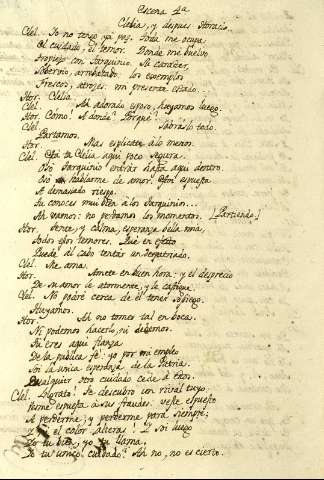 Escena 4ª
Clelia, y despues Horacio.
Clel. Io no tengo ya paz. Toda me ocupa
El cuidado, el temor. Donde me buelvo
tropiezo con Tarquinio. Su caracter,
Sobervio, arrebatado los exemplos
Frescos, atrozes: mi presente estado.
Hor. Clelia.
Clel. Ah adorado esposo, huyamos luego.
Hor. Como! A donde? Porquè?
Clel. Sabraslo todo.
Partamos.
Hor. Mas explicate à lo menos.
Clel. Està tu Clelia aqui poco segura.
Osò Tarquinio entrar hasta aqui dentro.
Osò hablarme de amor. Estoi expuesta
A demasiado riesgo.
Tu conoces mui bien à los Tarquinios...
Ah vamos: no perdamos los momentos. [Partiendo]
Hor. tente, y calma, esperanza bella mia,
todos esos temores. Què en efeto
Puede al cabo tentar un desgraciado.
Clel. Me ama.
Hor. Amete en buen hora: y el desprecio
De su amor le atormente, y la castigue.
Clel. No podrè cerca de el tener sosiego.
Huyamos.
Hor. Ah no tomes tal en boca.
Ni podemos hacerlo, ni debemos.
Tu eres aqui fianza
De la publica fè: yo por mi empleo
Soi la unica esperanza de la Patria.
Qualquier otro cuidado cede à estos.
Clel. Ingrato! Se descubre un rival tuyo:
verme expuesta à sus fraudes: verse expuesto
A perderme, y perderme para siempre;
el color alteras! I soi luego
Io tu bien, yo tu llama,
Io tu unico cuidado? Ah no, no es cierto.